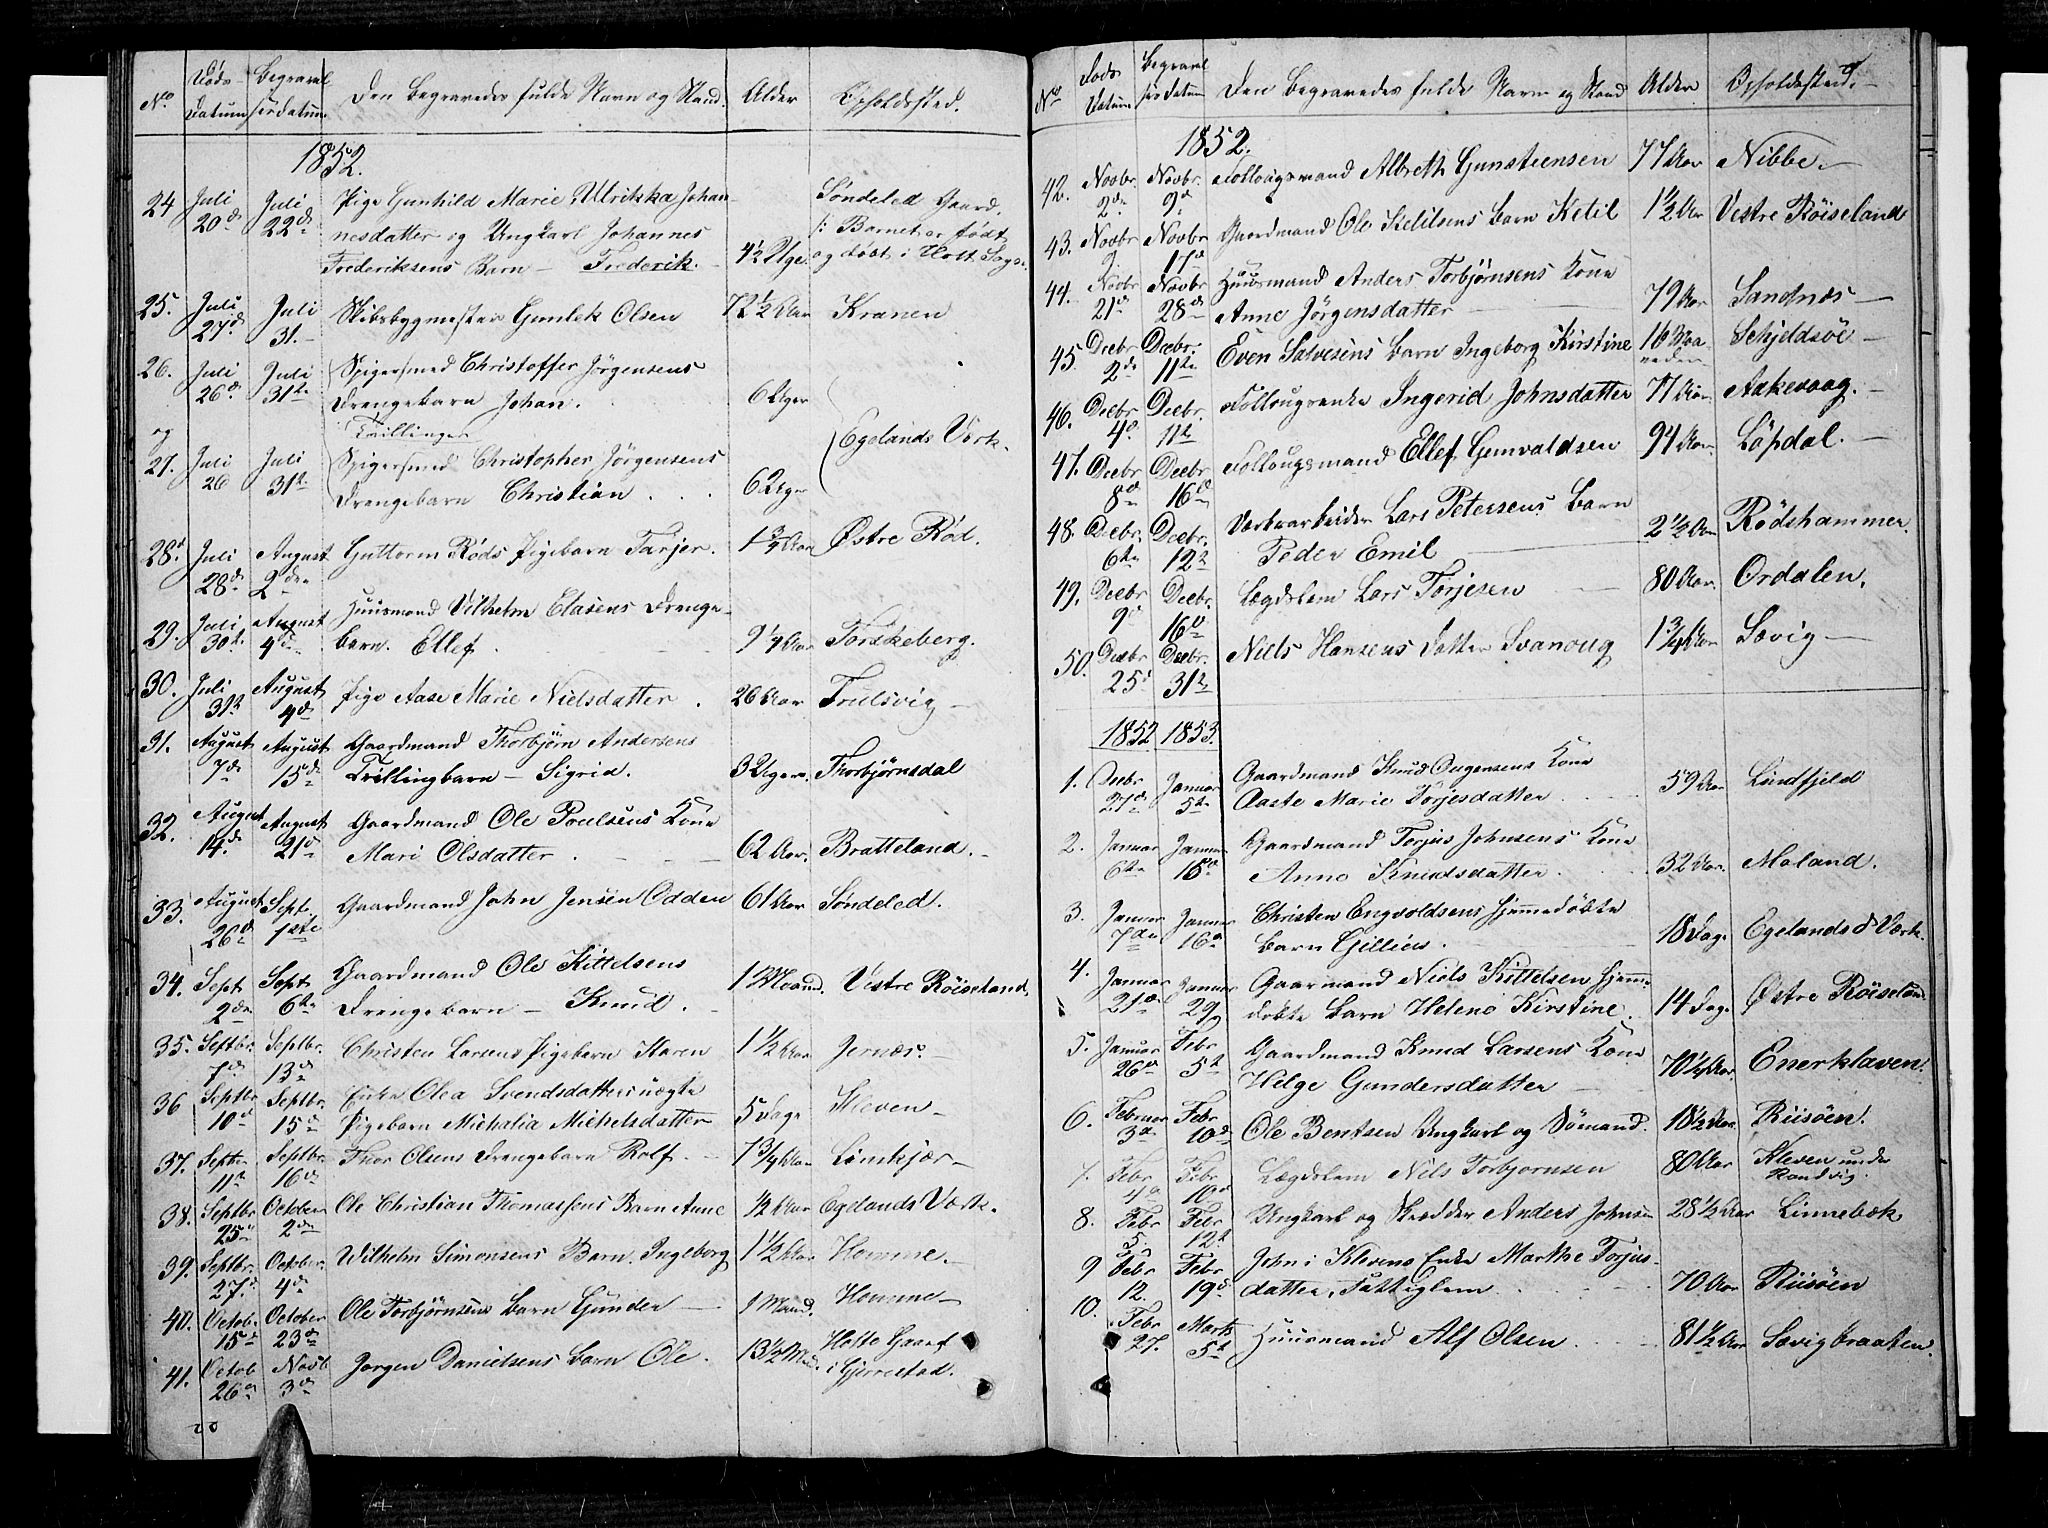 No Døds Datum Begravelsesdatum Den Begravedes fulde Navn og Stand Alder Opholdssted.
1852.
24 Juli 20de Juli 22de Pige Gunhild Marie Ulrikka Johan- Søndeled Gaard.
nesdatter og Ungkarl Johannes /: Barnet er født
Frederiksens Barn — Frederik. 4½ Uge. og døbt i Holt Sogn
25. Juli 27de Juli 31. Skibsbygmester Gunlek Olsen 72½ Aar Kranen
26. Juli 26de Juli 31te Spigersmed Christoffer Jørgensens
Drengebarn Johan. 6 Uger
og Tvillinger Egelands Værk.
27. Juli 26 Juli 31te Spigersmed Christopher Jörgensens
Drengebarn Christian 6 Uger
28. Juli 28de August 2den Guttorm Røds Pigebarn Tarjer. 1¾ Aar Østre Rød.
29. Juli 30te August 4de Huusmand Vilhelm Elasens Drenge-
barn. Ellef 9¼ Aar Torskeberg.
30. Juli 31te August 4de Pige Aase Marie Nielsdatter 26 Aar Frulsvig
31. August 7de August 15de Gaardmand Thorbjørn Andersens
Tvillingbarn — Sigrid. 3 Uger Thorbjørnsdal
32. August 14de August 21de Gaardmand Ole Poulsens Kone
Mari Olsdatter 62 Aar. Bratteland.
33. August 26de Sept. 1ste Gaardmand John Jensen Odden 61 Aar Søndeled.
34. Sept 2den Sept 6te Gaardmand Ole Kittelsens
Drengebarn — Knud. 1 Maaned. Vestre Röiseland.
35. Septbr. 7de Septbr. 13de Christen Larsens Pigebarn Karen 1½ Aar Jernæs.
36 Septbr 10de Septbr. 15de Enke Olea Svendsdatters uægte
Pigebarn Michalia Michelsdatter 5 Dage Kleven
37. Septbr. 11te Septbr 16de Thor Olsens Drengebarn Rolf. 1¾ Aar Limkjær
38. Septbr 25de October 2den Ole Christian Thomassens Barn Anne ½ Aar Egelands Værk.
39. Septbr 27de October 4de Wilhelm Simonsens Barn. Ingeborg 1½ Aar Homme.
40. Octob. 15de October 23de Ole Torbjørnsens Barn Gunder 1 Maaned. Homme
41. Octob 26de Novb 3de Jørgen Danielsens Barn Ole. 13½ Maaned. Holte Gaard
i Gjerrestad.
No Døds Datum Begravelsesdatum Den Begravedes fulde Navn og Stand Alder Opholdssted.
1852.
42. Novbr. 2den Novbr. 9de Follougsmand Albreth Gunstiensen 77 Aar Nibbe.
43. Novbr 9 Novbr 17de Gaardmand Ole Ketilsens Barn Ketil 1½ Aar Vestre Röiseland
44. Novbr 21de Novbr 28de Huusmand Anders Torbjørnsens Kone
Anne Jörgensdatter 79 Aar Sandnæs
45. Decbr 2den Decbr. 11te Even Salvesens Barn Ingeborg Kirstine 16 Maa-neder Schjeldsöe
46. Decbr 4de Decbr. 11te Follougsenke Ingerid Johnsdatter 77 Aar Aakevaag.
47. Decbr 8de Decbr 16de Follougsmand Ellef Gunvaldsen 94 Aar. Löpdal.
48. Decbr. 6te Decbr. 12te Værksarbeider Lars Petersens Barn
Peder Emil 2½ Aar Rödshammer.
49. Decbr 9de Decbr. 16de Lægdslem Lars Torjesen 80 Aar Ordalen.
50. Decbr 25de Decbr. 31te Niels Hansens Datter Svanoug 1¾ Aar Sævig
1852 1853.
1. Decbr 27de Januar 5te Gaardmand Knud Ougensens Kone
Aaste Marie Torjesdatter 59 Aar Lindfjeld
2. Januar 6te Januar 15de Gaardmand Torjus Johnsens Kone
Anne Knudsdatter. 32 Aar. Moland.
3. Januar 7de Januar 16de Christen Engvoldsens hjemmedöbte
Barn Gillius. 18 Dage Egelands Værk
4. Januar 21de Januar 29 Gaarmand Niels Kittelsen hjemme-
döbte Barn Helene Kirstine. 14 Dage Østre Röiseland
5. Januar 26de Febr 5te Gaardmand Knud Larsens Kone
Helge Gundersdatter 70½ Aar. Enerklaven.
6. Februar 3de Febr 10de Ole Bentsen Ungkarl og Sömand. 18½ Aar. Riisöen.
7. Febr 4de Febr 10de Lægdslem Nils Torbjørnsen 80 Aar Kleven under
Sandvig.
8. Febr 5. Febr 12te Ungkarl og Skrædder Anders Johnsen 28½ Aar Linnebæk
9 Febr 12. Febr 19de John i Klevens Enke Marthe Torjus-
datter, Fattiglem 70 Aar Riisöen
10. Febr 27. Marts 5te Huusmand Alf Olsen 81½ Aar Sævigbraaten.